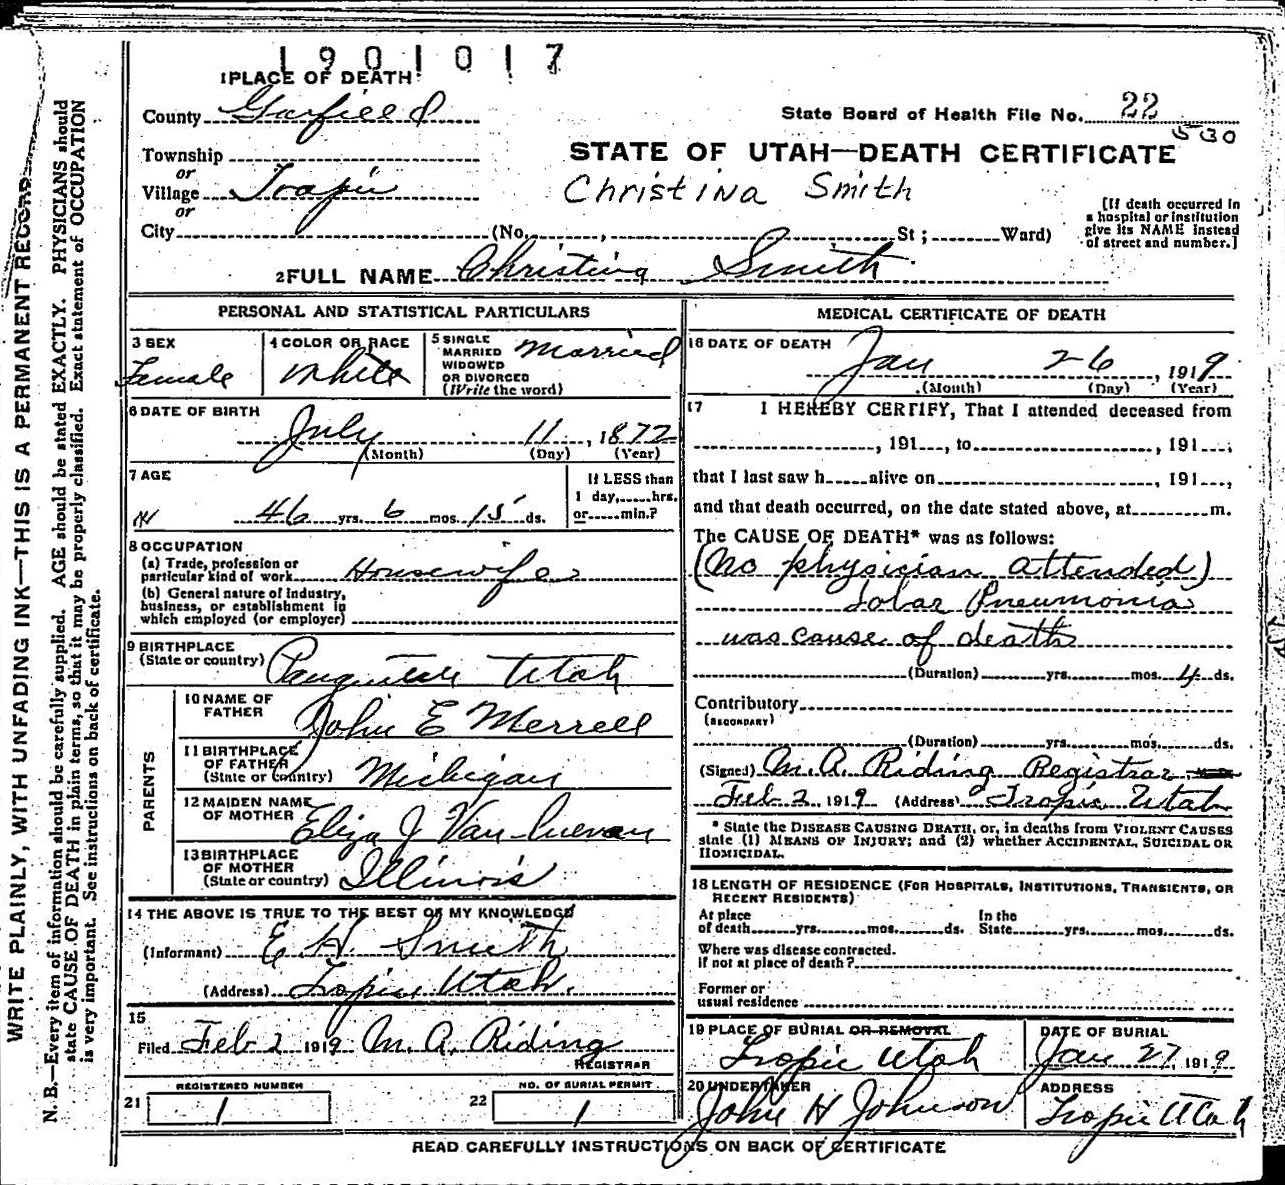 1901017
1 PLACE OF DEATH
County Garfield
State Board of Health File No. 22
530
Township
or
Village Tropic
or
City (No. , St ; Ward)
STATE OF UTAH—DEATH CERTIFICATE
Christina Smith
[If death occurred in
a hospital or institution
give its NAME instead
of street and number.]
2 FULL NAME Christina Smith
PERSONAL AND STATISTICAL PARTICULARS
3 SEX
Female
4 COLOR OR RACE
White
5 SINGLE
MARRIED
WIDOWED
OR DIVORCED
(Write the word)
Married
6 DATE OF BIRTH
July 11, 1872
(Month) (Day) (Year)
7 AGE
46 yrs. 6 mos. 15 ds.
If LESS than
1 day, hrs.
or min.?
8 OCCUPATION
(a) Trade, profession or
particular kind of work Housewife
(b) General nature of industry,
business, or establishment in
which employed (or employer)
9 BIRTHPLACE
(State or country) Panguitch Utah
PARENTS
10 NAME OF
FATHER John E Merrell
11 BIRTHPLACE
OF FATHER
(State or Country) Michigan
12 MAIDEN NAME
OF MOTHER Eliza J Van Luevan
13 BIRTHPLACE
OF MOTHER
(State or country) Illinois
14 THE ABOVE IS TRUE TO THE BEST OF MY KNOWLEDGE
(Informant) E H. Smith
(Address) Tropic Utah.
15
Filed Feb 2 1919 M. A. Riding
REGISTRAR
REGISTERED NUMBER
21 1
NO. OF BURIAL PERMIT
22 1
MEDICAL CERTIFICATE OF DEATH
16 DATE OF DEATH
Jan 26, 1919
(Month) (Day) (Year)
17 I HEREBY CERTIFY, That I attended deceased from
, 191 , to , 191 ,
that I last saw h alive on , 191 ,
and that death occurred, on the date stated above, at m.
The CAUSE OF DEATH* was as follows:
(No physician attended)
Lobar Pneumonia
was cause of death
(Duration) yrs. mos. 4 ds.
Contributory
(SECONDARY)
(Duration) yrs. mos. ds.
(Signed) M. A. Riding Registrar
Feb 2, 1919 (Address) Tropic Utah
* State the DISEASE CAUSING DEATH, or, in deaths from VIOLENT CAUSES
state (1) MEANS OF INJURY; and (2) whether ACCIDENTAL, SUICIDAL OR
HOMICIDAL.
18 LENGTH OF RESIDENCE (FOR HOSPITALS, INSTITUTIONS, TRANSIENTS, OR
RECENT RESIDENTS)
At place
of death yrs. mos. ds.
In the
State yrs. mos. ds.
Where was disease contracted.
if not at place of death?
Former or
usual residence
19 PLACE OF BURIAL OR REMOVAL
Tropic Utah
DATE OF BURIAL
Jan 27, 1919
20 UNDERTAKER
John H Johnson
ADDRESS
Tropic Utah
READ CAREFULLY INSTRUCTIONS ON BACK OF CERTIFICATE
WRITE PLAINLY, WITH UNFADING INK—THIS IS A PERMANENT RECORD
N. B.—Every item of information should be carefully supplied. AGE should be stated EXACTLY. PHYSICIANS should
state CAUSE OF DEATH in plain terms, so that it may be properly classified. Exact statement of OCCUPATION
is very important. See instructions on back of certificate.